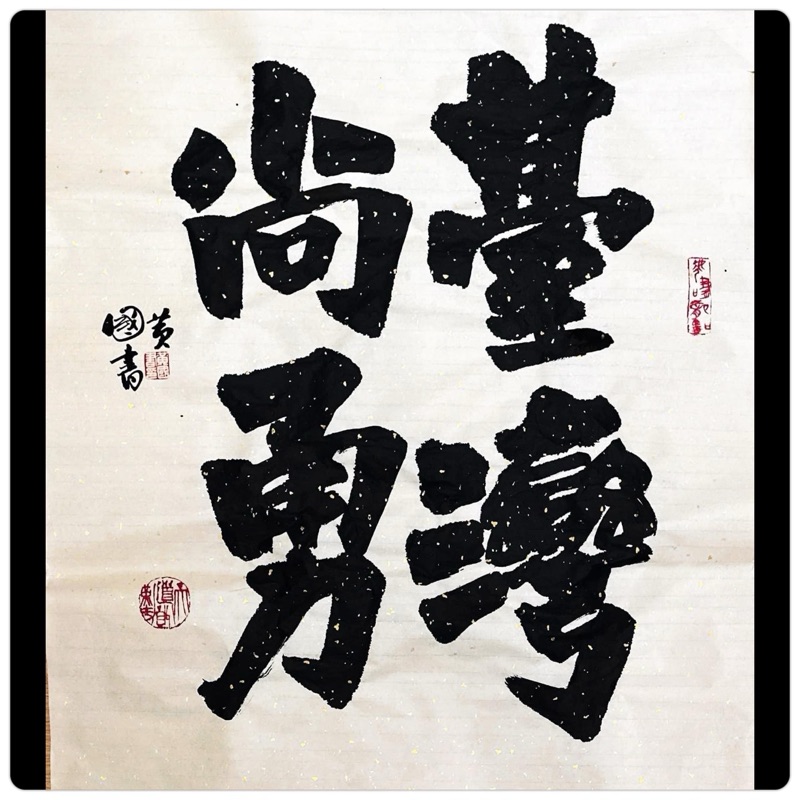 臺灣
尚勇
黃
國書